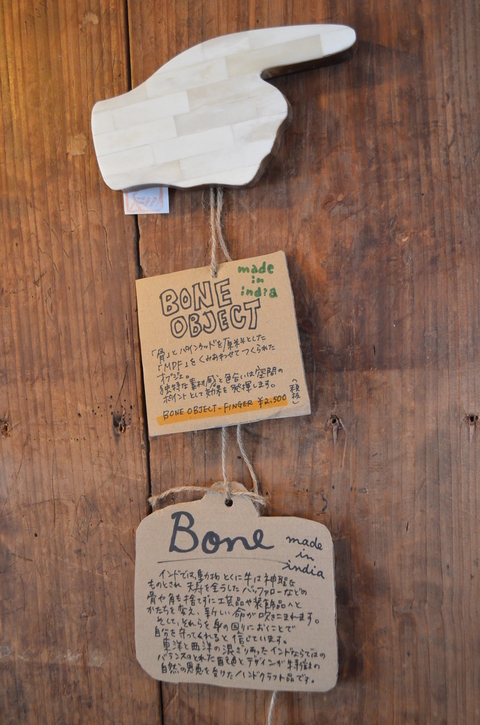 BONE
OBJECT
made
in
india
「骨」とパインウッドを原料とした
「MDF」をくみあわせてつくられた
オブジェ。
独特な素材感と色合いは空間の
ポイントとして効果を発揮します。
BONE OBJECT-FINGER ¥2,500
(税抜)
Bone
made
in
india
インドでは、動物 とくに牛は神聖な
ものとされ 天寿を全うした バッファローなどの
骨や角を捨てずに工芸品や装飾品へと
かたちを変え、新しい命が吹きこまれます。
そして、それらを身の回りにおくことで
自分を守ってくれると信じています。
東洋と西洋の混ざりあったインドならではの
バランスのとれた色とデザインが特徴の
自然の恩恵を受けたハンドクラフト品です。